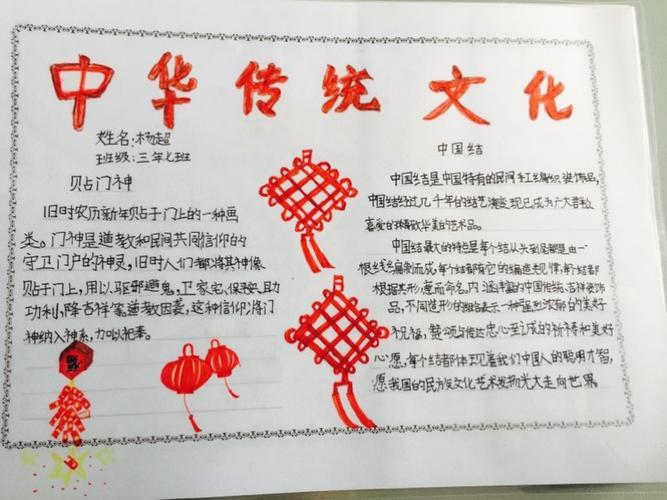 中华传统文化
姓名:杨超
班级:三年七班
贴门神
旧时农历新年贴于门上的一种画
类。门神是道教和民间共同信仰的
守卫门户的神灵,旧时人们都将其神像
贴于门上,用以驱邪避鬼,卫家宅,保平安,助
功利,降吉祥等,道教因袭,这种信仰,将门
神纳入神系,加以祀奉。
福
中国结
中国结是中国特有的民间手工编织装饰品,
中国结经过几千年的结艺演变,现已成为广大群众
喜爱的精致华美的艺术品。
中国结最大的特点是每个结从头到尾都是由一
根丝线编制而成,每个结都有它的编造规律,每个结都
根据其形,意而命名,内涵丰富的中国传统吉祥装饰
品,不同造形的组结表示一种强烈浓郁的美好
祝福,赞颂与传达忠心至诚的祈祷和美好
心愿,每个结都体现着我们中国人的聪明才智,
愿我国的民族文化艺术发扬光大走向世界。